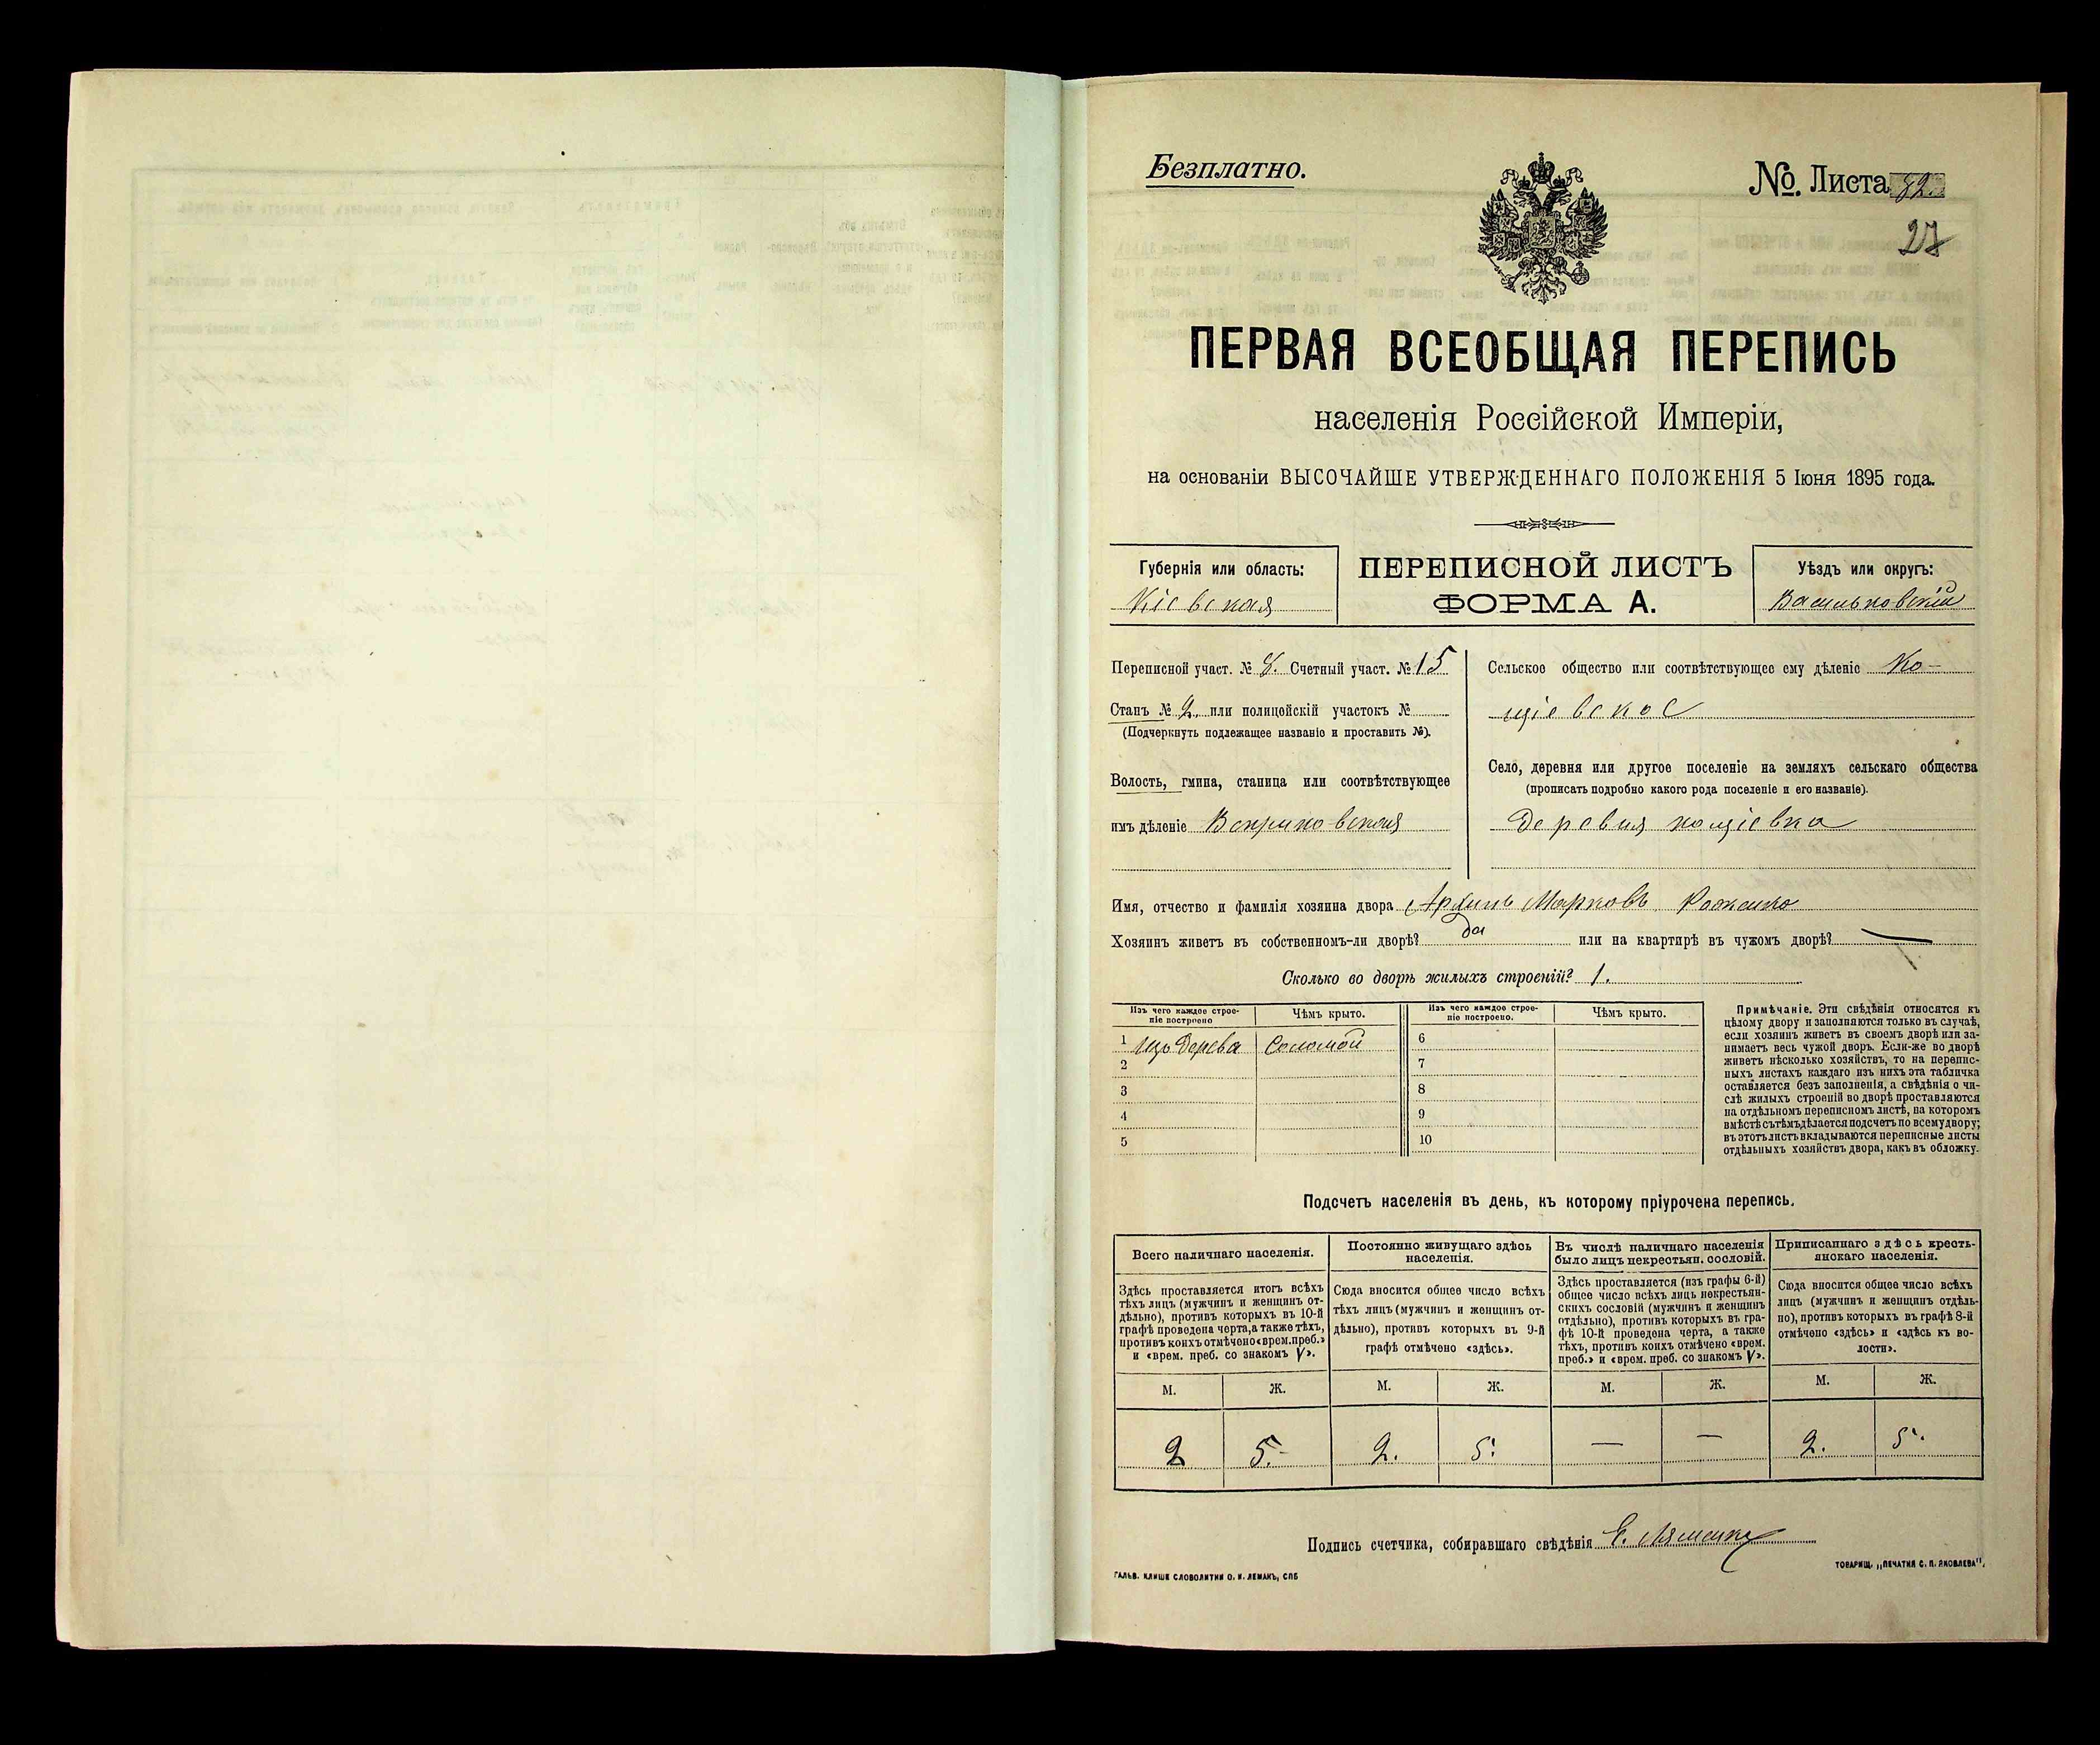 Безплатно.
№. Листа 82.
27
ПЕРВАЯ ВСЕОБЩАЯ ПЕРЕПИСЬ
населенія Россійской Имперіи,
на основаніи ВЫСОЧАЙШЕ УТВЕРЖДЕННАГО ПОЛОЖЕНІЯ 5 Іюня 1895 года.
Губернія или область:
Кіевская
ПЕРЕПИСНОЙ ЛИСТЪ
ФОРМА А.
Уѣздъ или округъ:
Васильковскій
Переписной участ. № 8. Счетный участ. № 15
Станъ № 2. или полицейскій участокъ №
(Подчеркнуть подлежащее названіе и проставить №).
Волость, гмина, станица или соотвѣтствующее
имъ дѣленіе
Сельское общество или соотвѣтствующее ему дѣленіе Ко-
щіевское
Село, деревня или другое поселеніе на земляхъ сельскаго общества
(прописать подробно какого рода поселеніе и его названіе).
Деревня кощіевка
Имя, отчество и фамилія хозяина двора Марковъ
Хозяинъ живетъ въ собственномъ-ли дворѣ? да или на квартирѣ въ чужомъ дворѣ? —
Сколько во дворѣ жилыхъ строеній? 1.
Изъ чего каждое строе-
ніе построено
Чѣмъ крыто.
1 изъ дерева Соломой
2
3
4
5
Изъ чего каждое строе-
ніе построено.
Чѣмъ крыто.
6
7
8
9
10
Примѣчаніе. Эти свѣдѣнія относятся къ
цѣлому двору и заполняются только въ случаѣ,
если хозяинъ живетъ въ своемъ дворѣ или за-
нимаетъ весь чужой дворъ. Если-же во дворѣ
живетъ нѣсколько хозяйствъ, то на перепис-
ныхъ листахъ каждаго изъ нихъ эта табличка
оставляется безъ заполненія, а свѣдѣнія о чи-
слѣ жилыхъ строеній во дворѣ проставляются
на отдѣльномъ переписномъ листѣ, на которомъ
вмѣстѣ съ тѣмъ дѣлается подсчетъ по всему двору;
въ этотъ листъ вкладываются переписные листы
отдѣльныхъ хозяйствъ двора, какъ въ обложку.
Подсчетъ населенія въ день, къ которому пріурочена перепись.
Всего наличнаго населенія.
Здѣсь проставляется итогъ всѣхъ
тѣхъ лицъ (мужчинъ и женщинъ от-
дѣльно), противъ которыхъ въ 10-й
графѣ проведена черта, а также тѣхъ,
противъ коихъ отмѣчено «врем. преб.»
и «врем. преб. со знакомъ V».
М. Ж.
2 5.
Постоянно живущаго здѣсь
населенія.
Сюда вносится общее число всѣхъ
тѣхъ лицъ (мужчинъ и женщинъ от-
дѣльно), противъ которыхъ въ 9-й
графѣ отмѣчено «здѣсь».
М. Ж.
2. 5.
Въ числѣ наличнаго населенія
было лицъ некрестьян. сословій.
Здѣсь проставляется (изъ графы 6-й)
общее число всѣхъ лицъ некрестьян-
скихъ сословій (мужчинъ и женщинъ
отдѣльно), противъ которыхъ въ гра-
фѣ 10-й проведена черта, а также
тѣхъ, противъ коихъ отмѣчено «врем.
преб.» и «врем. преб. со знакомъ V».
М. Ж.
— —
Приписаннаго здѣсь кресть-
янскаго населенія.
Сюда вносится общее число всѣхъ
лицъ (мужчинъ и женщинъ отдѣль-
но), противъ которыхъ въ графѣ 8-й
отмѣчено «здѣсь» и «здѣсь къ во-
лости».
М. Ж.
2. 5.
Подпись счетчика, собиравшаго свѣдѣнія
ГАЛЬВ. КЛИШЕ СЛОВОЛИТНИ О. И. ЛЕМАНЪ, СПБ
ТОВАРИЩ. „ПЕЧАТНЯ С. П. ЯКОВЛЕВА".